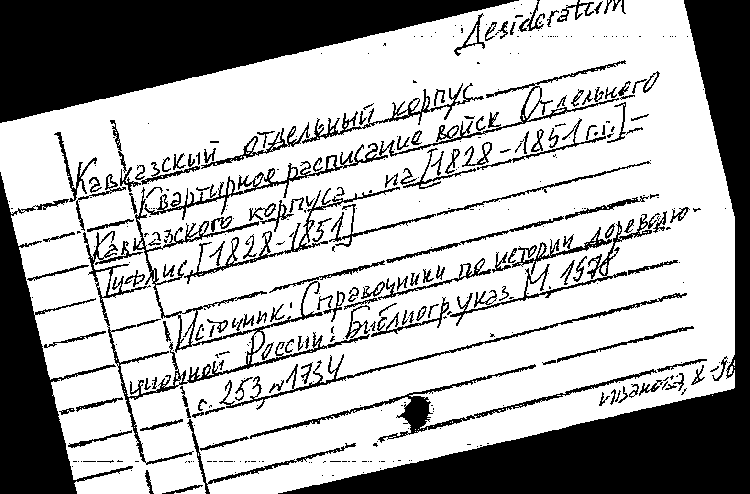 Desideratum
Кавказский отдельный корпус
Квартирное расписание войск Отдельного
Кавказского корпуса... на [1828-1851 г.г.] –
Тифлис, [1828-1851]
Источник: Справочники по истории дореволю-
ционной России: Библиогр. указ. М., 1978
с. 253, №1734
Иванова, X-96